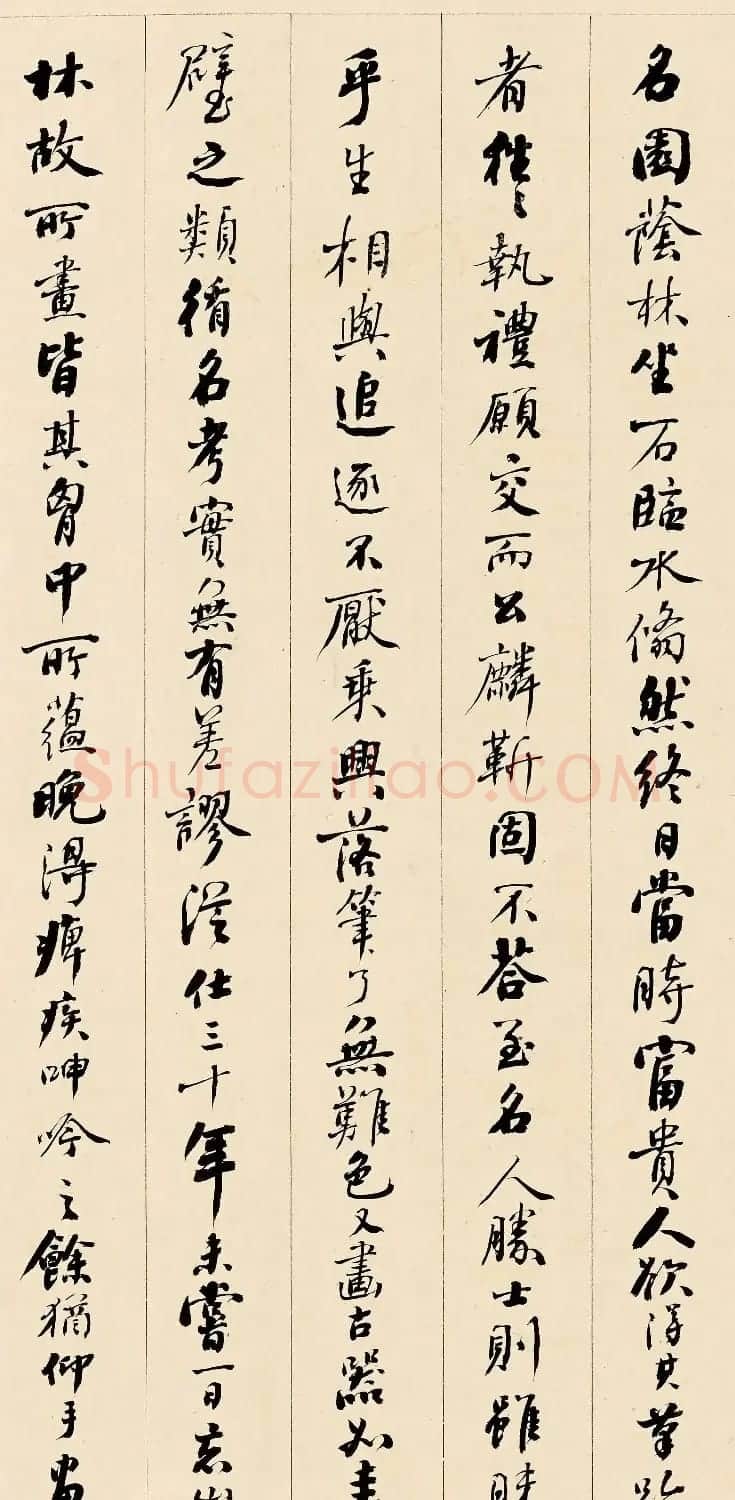 名園蔭林坐石臨水翛然終日當時富貴人欲得其筆跡
者往往執禮願交而公麟靳固不荅至名人勝士則雖昧
平生相與追逐不厭乘興落筆了無難色又畫古器如圭
璧之類循名考實無有差謬從仕三十年未嘗一日忘山
林故所畫皆其胷中所蘊晚得痺疾呻吟之餘猶仰手畫
Shufaziliao.COM